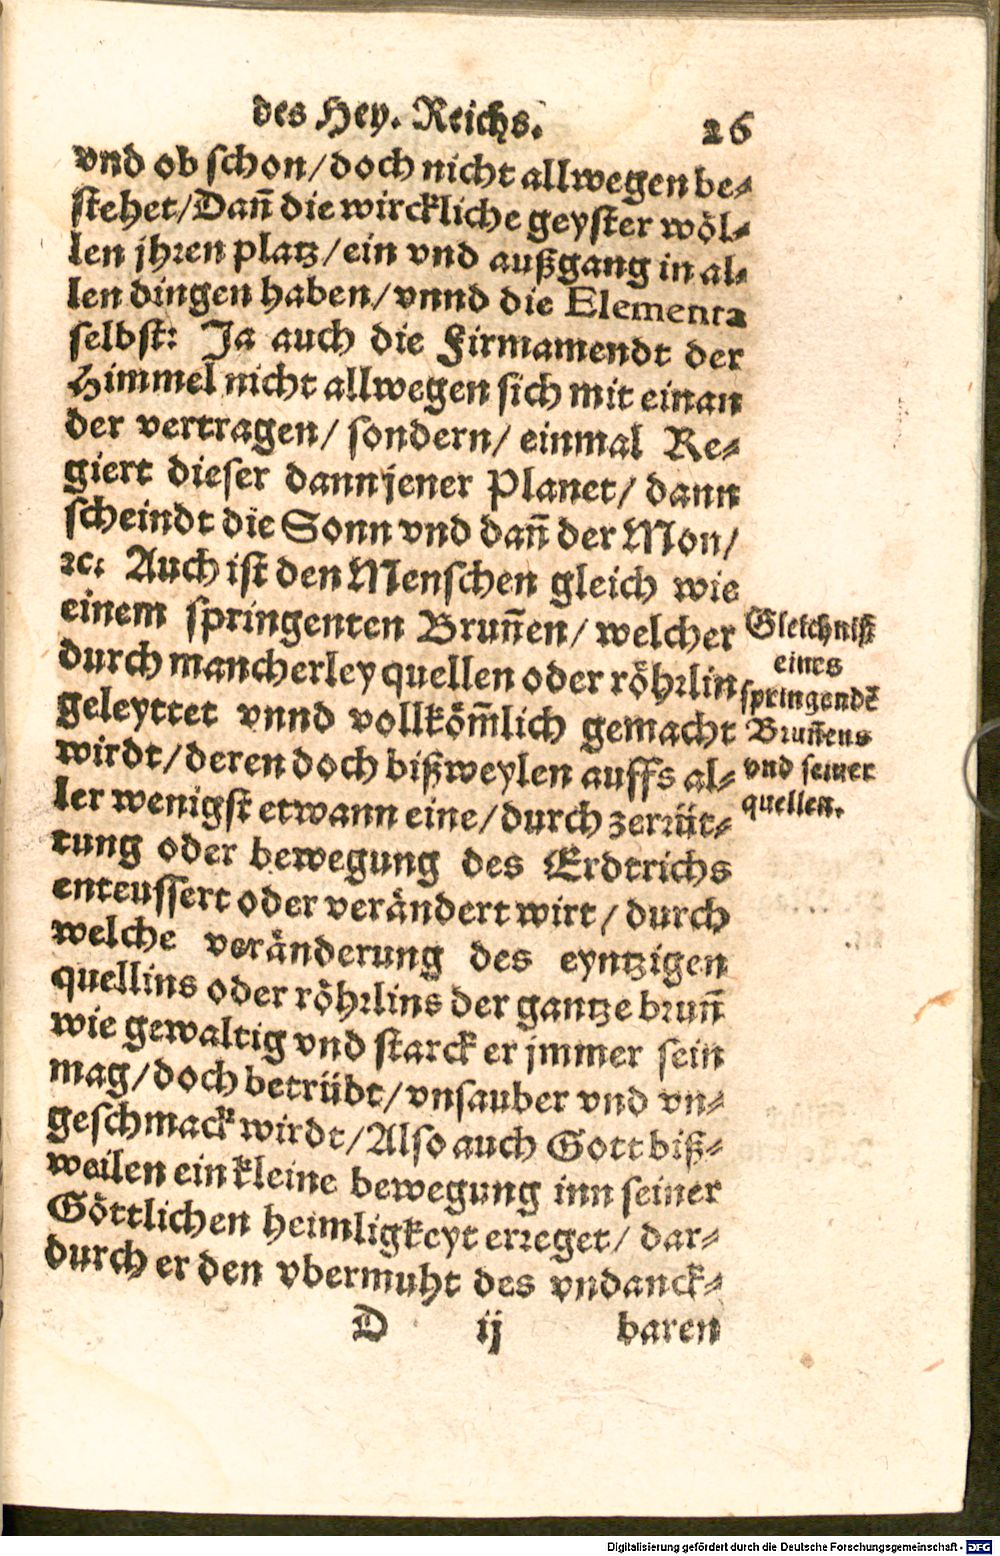 des Hey. Reichs. 26
vnd ob schon/doch nicht allwegen be-
stehet/Dañ die wirckliche geyster wöl-
len jhren platz/ein vnd außgang in al-
len dingen haben/vnnd die Elementa
selbst: Ja auch die Firmamendt der
Himmel nicht allwegen sich mit einan
der vertragen/ sondern/ einmal Re-
giert dieser dann jener Planet/ dann
scheindt die Sonn vnd dañ der Mon/
ꝛc. Auch ist den Menschen gleich wie
einem springenten Bruñen/ welcher
durch mancherley quellen oder röhrlin
geleyttet vnnd vollköm̃lich gemacht
wirdt/deren doch bißweylen auffs al-
ler wenigst etwann eine/durch zerrüt-
tung oder bewegung des Erdtrichs
enteussert oder verändert wirt/ durch
welche veränderung des eyntzigen
quellins oder röhrlins der gantze bruñ
wie gewaltig vnd starck er jmmer sein
mag/doch betrübt/vnsauber vnd vn-
geschmack wirdt/Also auch Gott biß-
weilen ein kleine bewegung inn seiner
Göttlichen heimligkeyt erreget/ dar-
durch er den vbermuht des vndanck-
D ij baren
Gleichniß
eines
springendẽ
Bruñens
vnd seiner
quellen.
Digitalisierung gefördert durch die Deutsche Forschungsgemeinschaft - DFG